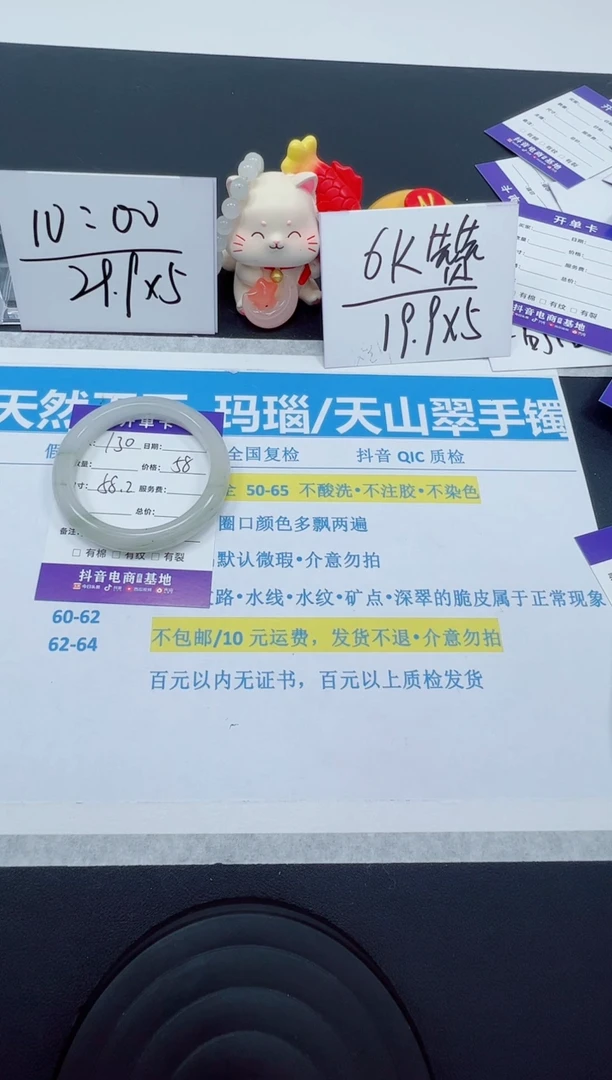 10:00
29.9x5
6K赞
19.9x5
开单卡
日期:
价格:
服务费:
总价:
□有棉 □有纹 □有裂
抖音电商 基地
天然
玛瑙/天山翠手镯
全国复检
抖音 QIC 质检
开单卡
130 日期:
数量: 价格: 58
尺寸: 58.2 服务费:
总价:
备注:
□有棉 □有纹 □有裂
抖音电商 基地
50-65 不酸洗•不注胶•不染色
圈口颜色多飘两遍
默认微瑕•介意勿拍
路•水线•水纹•矿点•深翠的脆皮属于正常现象
60-62
62-64
不包邮/10 元运费，发货不退•介意勿拍
百元以内无证书，百元以上质检发货